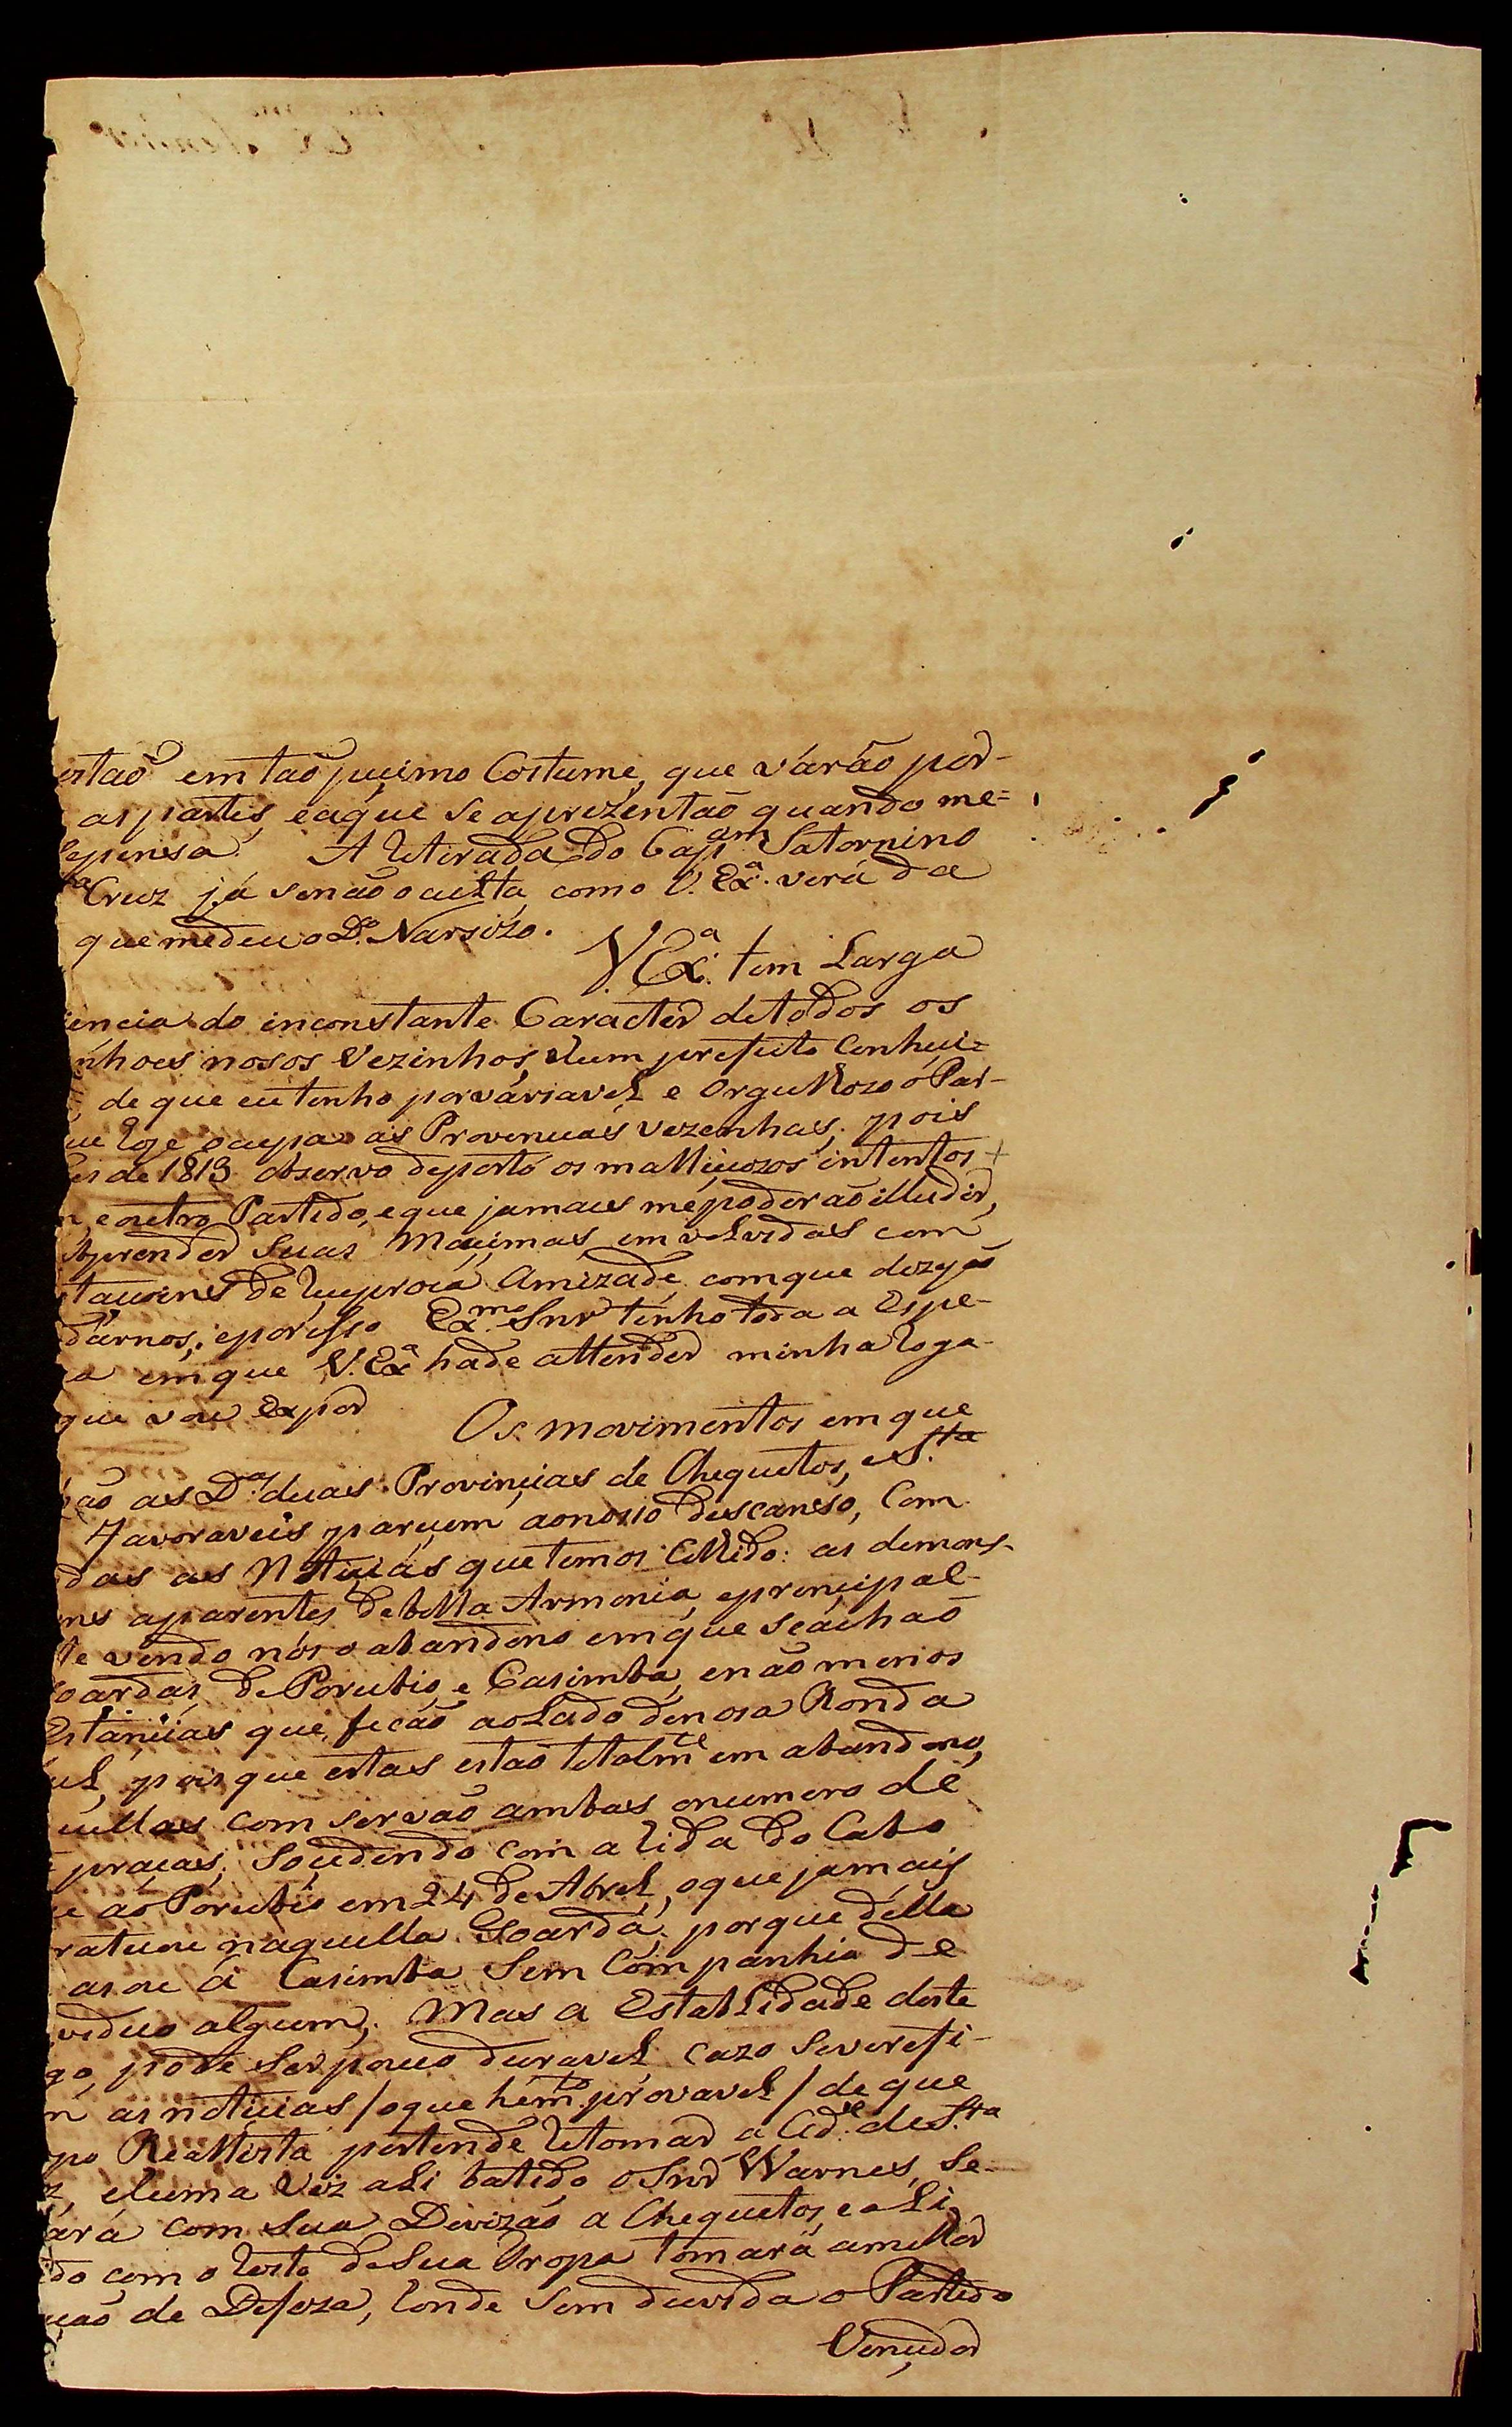 estaõ em taõ pucimo Costume, que várão por-
as partes, eaque se aprezentaõ quando me=
repensa. A retirada do Capam Satornino
ta Cruz já senão oculta, como V. Exa. verá da
que medeu o Do. Narsizo.
V. Exa. tem Larga
iencia do inconstante Caracter detodos os
nhoes nosos Vezinhos, elum prefeito Conheci=
de que eu tenho por váriavel e Orgulhozo o Par-
ue hoje ocupa as Provencias vezenhas; pois
des de 1813 observo deperto os mallicozos intentos +
m, e outro Partido, eque jamais me poderaõ illudir,
Aprender Suas Maximas, emvolvidas com
de reciproca Amizade, comque dezejaõ
darnos; eporisso Exmo. Snr tenho toda a Espe-
a emque V. Exa hade attender minha roga-
que vou Expor Os movimentos emque
ão as Das. duas Provincias de Chequetos, eS.ta
Favoraveis parecem aonosso descanso, Com
das as Noticias que temos Colhido: as demons-
ns aparentes debella Armonia, eprencipal-
te vendo nós o abandono emque seachaõ
oardas de Porubio, e Casimba, enão menos
Estancias que ficaõ aoLado denosa Ronda
ul, por que estas estaõ totalmte em abandono,
uellas comservaõ ambas onumero de
praças; Soudendo com a hida do Cabo
e ao Porubio em 24 de Abril, oque jamais
raticou naquella Goarda; porque della
asou á Casimba Sem Companhia de
veduo algum; Mas a Establidade deste
go, pode Ser pouco duravel cazo Severefi-
m as noticias / oque hé mto. provavel / de que
po Reallista pertende retomar a Cide. deS.ta
z, eluma vez ali batido o Snr Warnes, Se-
ará com Sua Divizaõ a Chequetos, e aLi
ido com o resto deSua Tropa tomará amelhor
uçaõ de Defeza, londe Sem duvida o Partedo
Vencedor